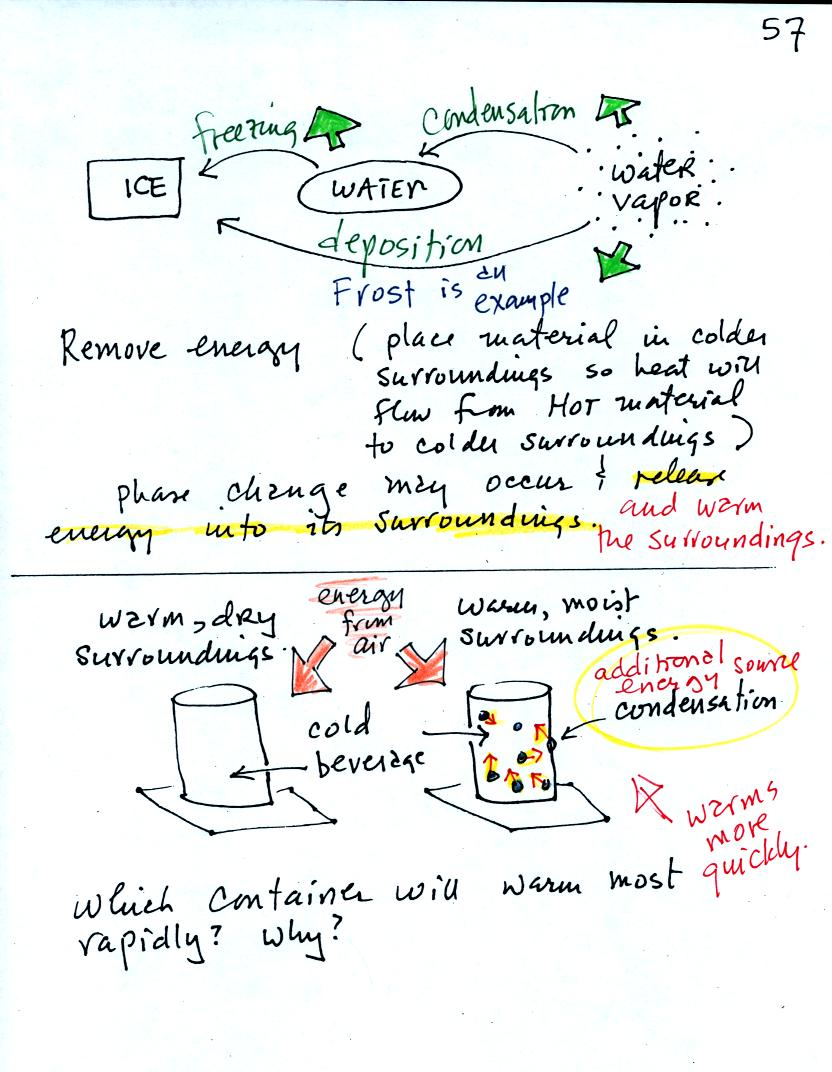 57
freezing
condensation
ICE
WATER
water
vapor
deposition
Frost is an
example
Remove energy ( place material in colder
surroundings so heat will
flow from HOT material
to colder surroundings )
phase change may occur & release
energy into its surroundings. and warm
the surroundings.
warm, dry
surroundings.
energy
from
air
warm, moist
surroundings.
additional source
energy
condensation
cold
beverage
warms
more
quickly.
Which container will warm most
rapidly? Why?